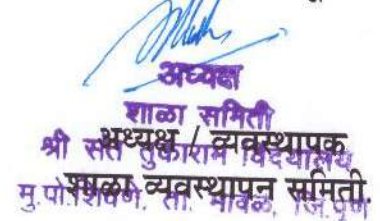 अध्यक्ष
शाळा समिती
अध्यक्ष / व्यवस्थापक
श्री संत तुकाराम विद्यालय
शाळा व्यवस्थापन समिती.
मु.पो. शिवणे, ता. मावळ, जि. पुणे